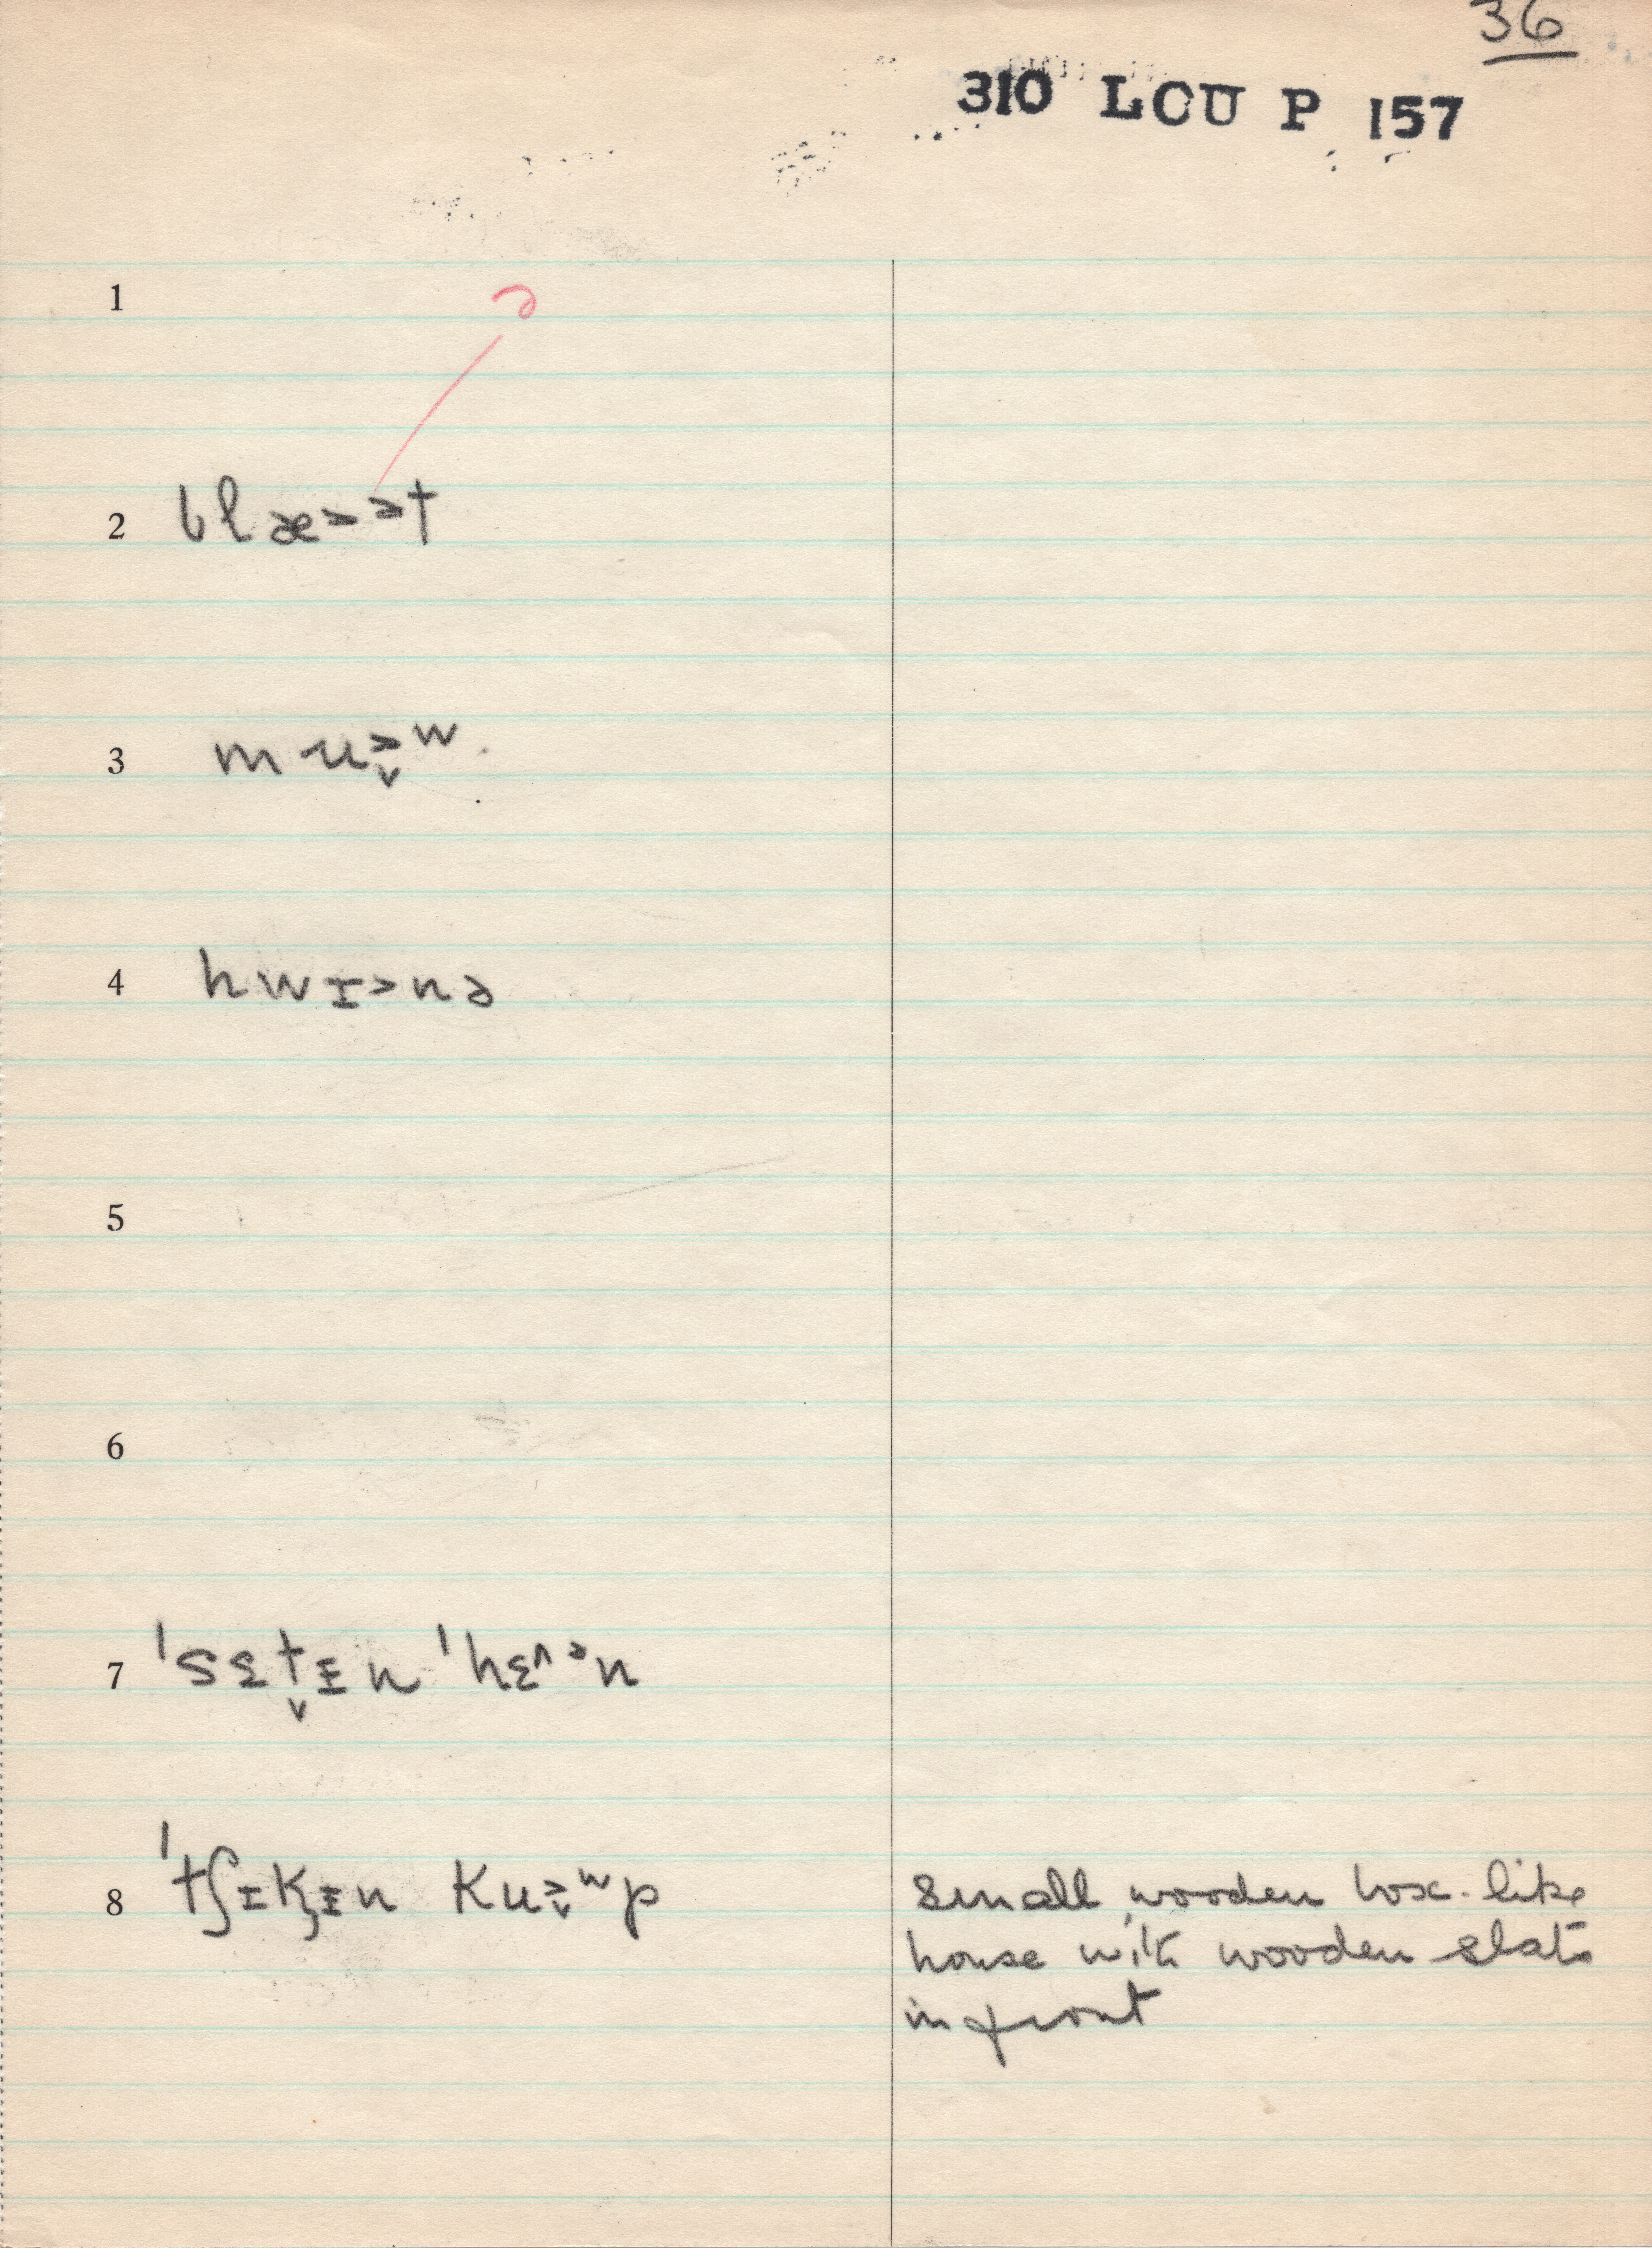 36
310 LCU P 157
1
ə
2 blæ˃ət
3 mu˃̬ʷ
4 hwɪ˃nə
5
6
7 ˈsɛt̬ɪn ˈhɛ˄ᵊn
8 ˈtʃɪk̬ɪn ku˃̬ʷp
small wooden box-like
house with wooden slats
in front